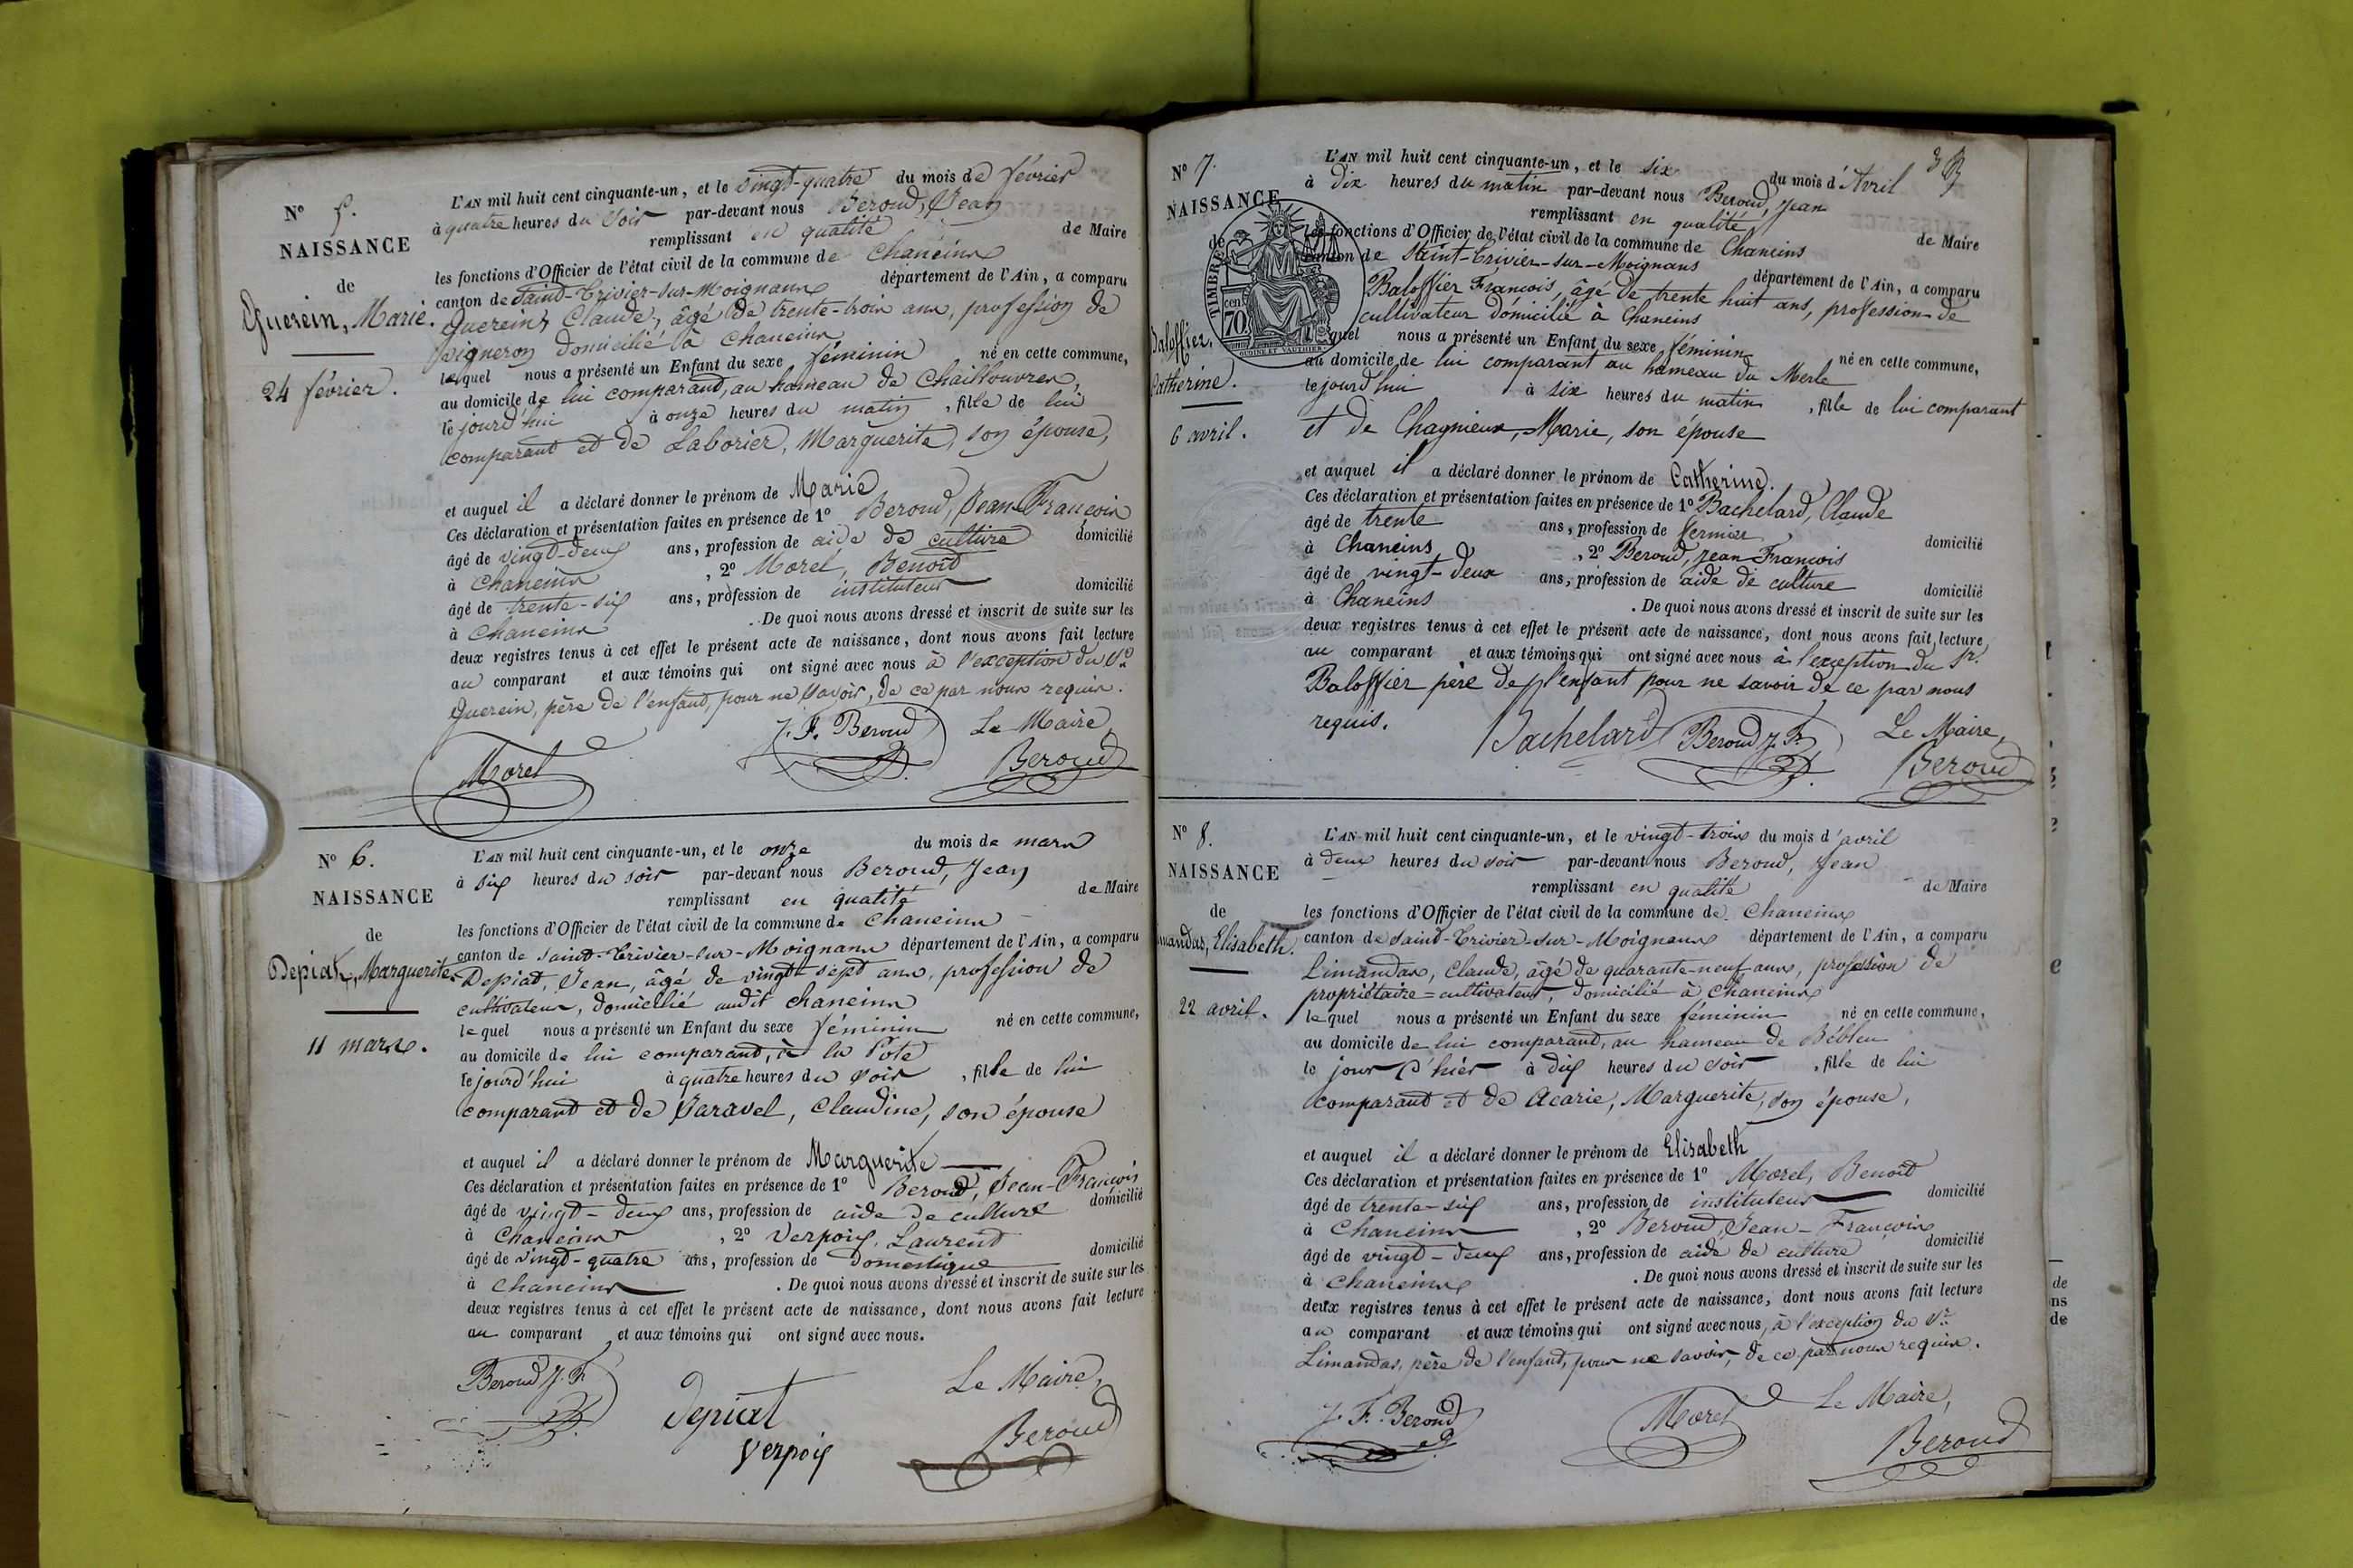 N° 5.
NAISSANCE
de
Guerein, Marie.
24 février.
L'AN mil huit cent cinquante-un, et le vingt-quatre du mois de février
à quatre heures du soir par-devant nous Béroud, Jean
remplissant en qualité de Maire
les fonctions d'Officier de l'état civil de la commune de Chaneins
canton de Saint-Trivier-sur-Moignans département de l'Ain, a comparu
Guerein, Claude, âgé de trente-trois ans, profession de
vigneron domicilié à Chaneins
lequel nous a présenté un Enfant du sexe féminin né en cette commune,
au domicile de lui comparant, au hameau de Chaillouvres,
le jourd'hui à onze heures du matin, fille de lui
comparant et de Laborier, Marguerite, son épouse,
et auquel il a déclaré donner le prénom de Marie
Ces déclaration et présentation faites en présence de 1° Beroud, Jean-François
âgé de vingt-deux ans, profession de aide de culture domicilié
à Chaneins, 2° Morel, Benoît
âgé de trente-six ans, profession de instituteur domicilié
à Chaneins. De quoi nous avons dressé et inscrit de suite sur les
deux registres tenus à cet effet le présent acte de naissance, dont nous avons fait lecture
au comparant et aux témoins qui ont signé avec nous à l'exception du Sr
Guerein, père de l'enfant, pour ne savoir, de ce par nous requis.
J. F. Beroud Le Maire,
Morel Beroud
N° 6.
NAISSANCE
de
Depiat, Marguerite
11 mars.
L'AN mil huit cent cinquante-un, et le onze du mois de mars
à six heures du soir par-devant nous Beroud, Jean
remplissant en qualité de Maire
les fonctions d'Officier de l'état civil de la commune de Chaneins
canton de Saint-Trivier-sur-Moignans département de l'Ain, a comparu
Depiat, Jean, âgé de vingt-sept ans, profession de
cultivateur, domicilié audit Chaneins
lequel nous a présenté un Enfant du sexe féminin né en cette commune,
au domicile de lui comparant, à la Pote
le jourd'hui à quatre heures du soir, fille de lui
comparant et de Paravel, Claudine, son épouse
et auquel il a déclaré donner le prénom de Marguerite
Ces déclaration et présentation faites en présence de 1° Beroud, Jean-François
âgé de vingt-deux ans, profession de aide de culture domicilié
à Chaneins, 2° Verpoix, Laurent
âgé de vingt-quatre ans, profession de domestique domicilié
à Chaneins. De quoi nous avons dressé et inscrit de suite sur les
deux registres tenus à cet effet le présent acte de naissance, dont nous avons fait lecture
au comparant et aux témoins qui ont signé avec nous.
Beroud J. F. Depiat Le Maire,
Verpoix Beroud
N° 7.
NAISSANCE
de
Baloffier,
Catherine.
6 avril.
TIMBRE
70 cent.
L'AN mil huit cent cinquante-un, et le six du mois d'Avril
à dix heures du matin par-devant nous Beroud, Jean
remplissant en qualité de Maire
les fonctions d'Officier de l'état civil de la commune de Chaneins
canton de Saint-Trivier-sur-Moignans département de l'Ain, a comparu
Baloffier François, âgé de trente huit ans, profession de
cultivateur domicilié à Chaneins
lequel nous a présenté un Enfant du sexe féminin né en cette commune,
au domicile de lui comparant au hameau du Merle
le jourd'hui à six heures du matin, fille de lui comparant
et de Chagnieux, Marie, son épouse
et auquel il a déclaré donner le prénom de Catherine.
Ces déclaration et présentation faites en présence de 1° Bachelard, Claude
âgé de trente ans, profession de fermier domicilié
à Chaneins, 2° Beroud, Jean-François
âgé de vingt-deux ans, profession de aide de culture domicilié
à Chaneins. De quoi nous avons dressé et inscrit de suite sur les
deux registres tenus à cet effet le présent acte de naissance, dont nous avons fait lecture
au comparant et aux témoins qui ont signé avec nous à l'exception du Sr.
Baloffier père de l'enfant pour ne savoir de ce par nous
requis.
Bachelard Beroud J. F. Le Maire,
Beroud
N° 8.
NAISSANCE
de
mandas, Elisabeth.
22 avril.
L'AN mil huit cent cinquante-un, et le vingt-trois du mois d'avril
à deux heures du soir par-devant nous Beroud, Jean
remplissant en qualité de Maire
les fonctions d'Officier de l'état civil de la commune de Chaneins
canton de Saint-Trivier-sur-Moignans département de l'Ain, a comparu
Limandas, Claude, âgé de quarante-neuf ans, profession de
propriétaire=cultivateur, domicilié à Chaneins
lequel nous a présenté un Enfant du sexe féminin né en cette commune,
au domicile de lui comparant, au hameau de Bébleu
le jour d'hier à dix heures du soir, fille de lui
comparant et de Acarie, Marguerite, son épouse,
et auquel il a déclaré donner le prénom de Elisabeth
Ces déclaration et présentation faites en présence de 1° Morel, Benoît
âgé de trente-six ans, profession de instituteur domicilié
à Chaneins, 2° Beroud, Jean-François
âgé de vingt-deux ans, profession de aide de culture domicilié
à Chaneins. De quoi nous avons dressé et inscrit de suite sur les
deux registres tenus à cet effet le présent acte de naissance, dont nous avons fait lecture
au comparant et aux témoins qui ont signé avec nous, à l'exception du Sr.
Limandas, père de l'enfant, pour ne savoir, de ce par nous requis.
J. F. Beroud Morel Le Maire,
Beroud